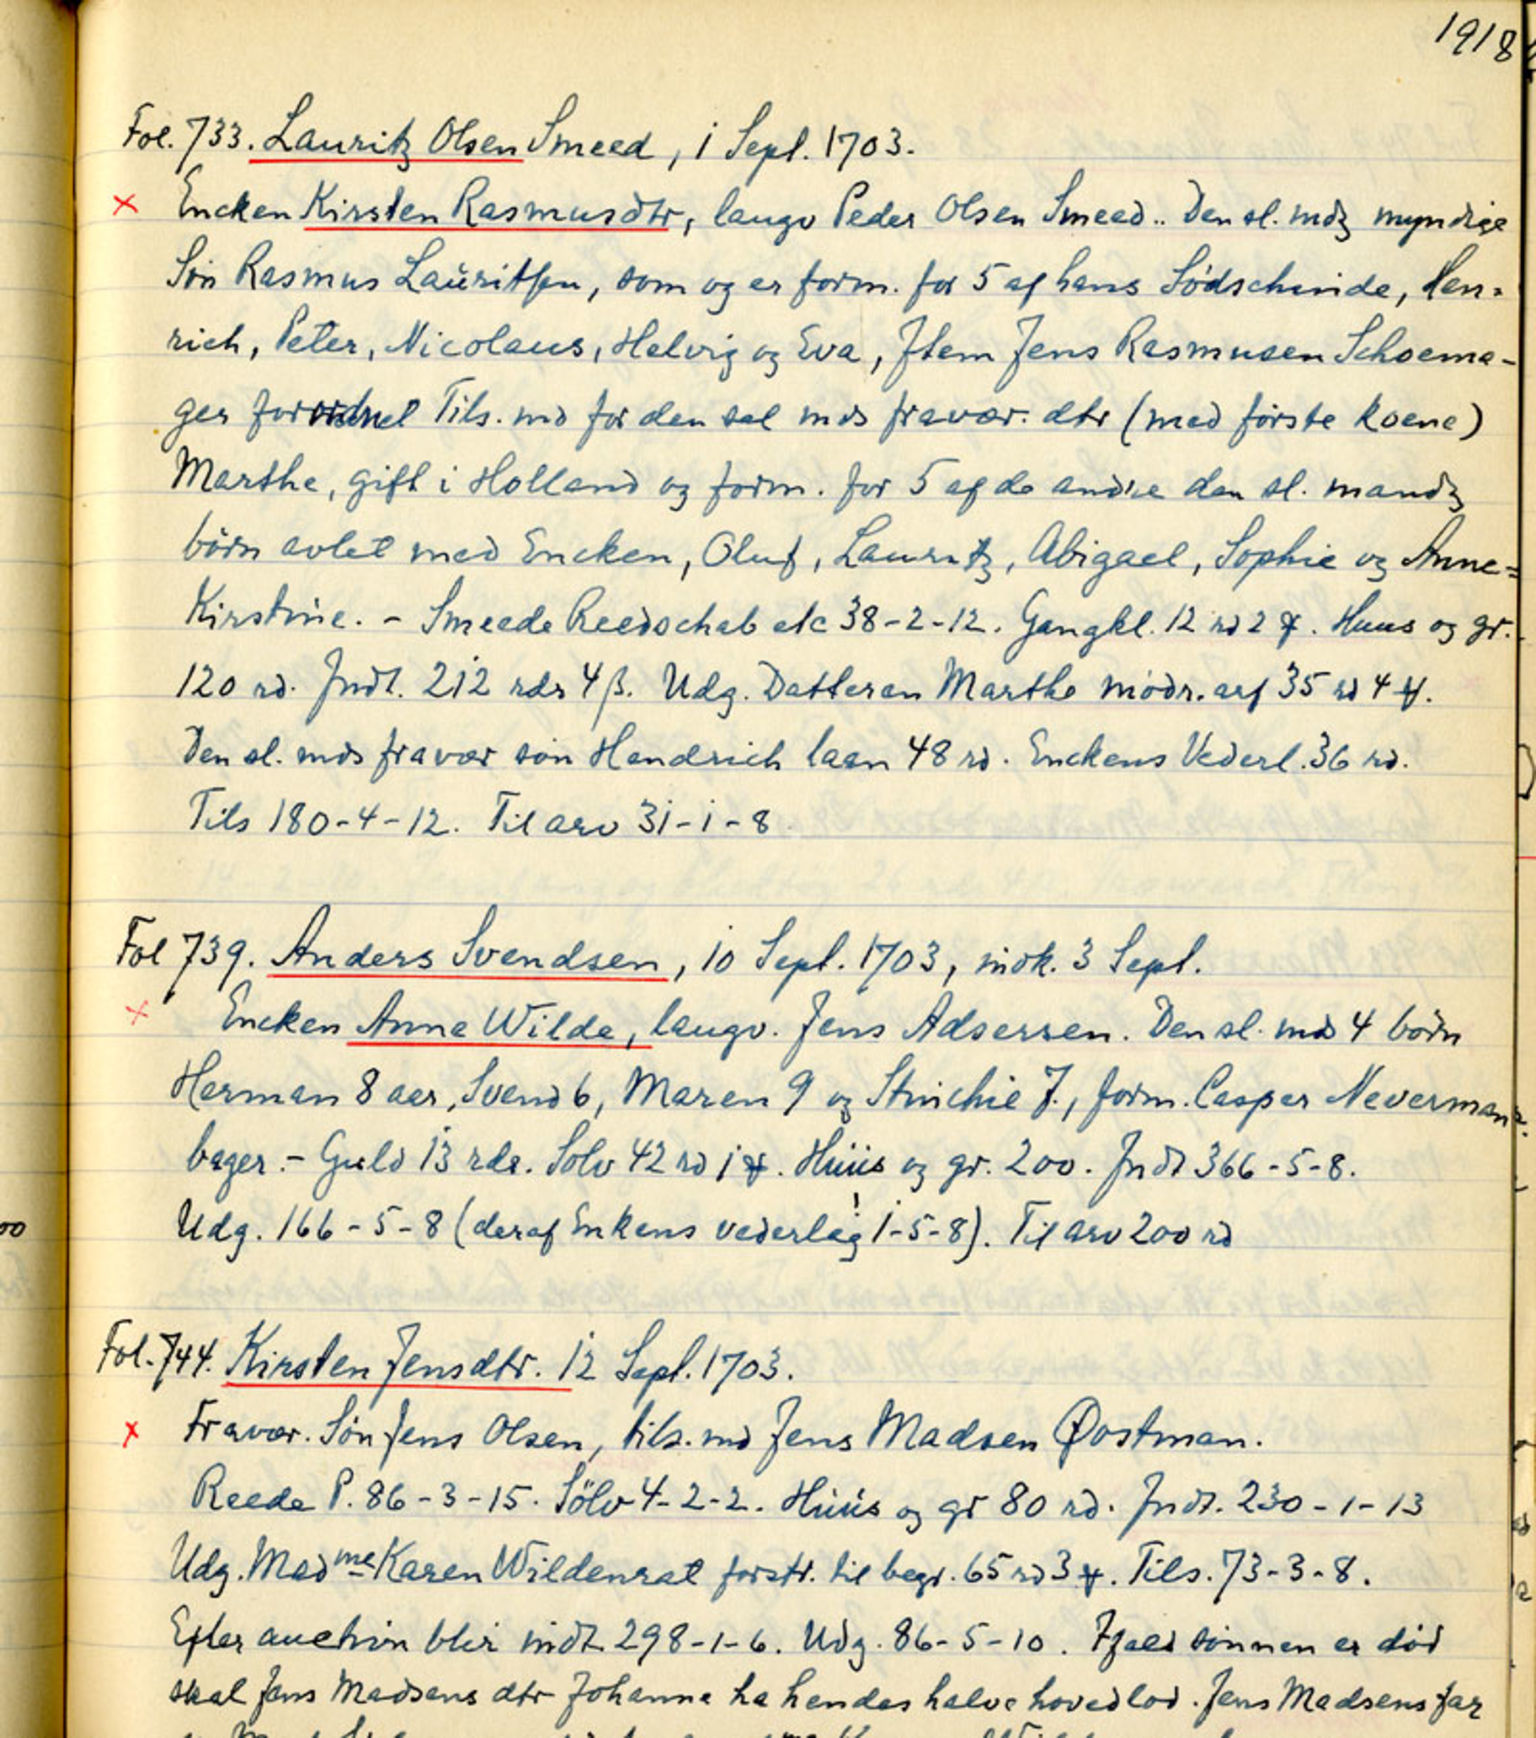 1918
Fol. 733. Lauritz Olsen Smeed, 1 Sept. 1703.
Encken Kirsten Rasmusdtr, laugv Peder Olsen Smeed.. Den sl. mdz myndige
Søn Rasmus Lauritsen, som og er form. for 5 af hans Södschinde, Hen-
rich, Peter, Nicolaus, Helvig og Eva, Item Jens Rasmusen Schoema-
ger forordnet Tils. md for den sal mds fravær. dtr (med første koene)
Marthe, gift i Holland og form. for 5 af de andre den sl. mandz
børn avlet med Encken, Oluf, Lauritz, Abigael, Sophie og Anne=
Kirstine. - Smeede Reedschab etc 38-2-12. Gangkl. 12 rd 2 ₰. Huus og gr.
120 rd. Indt. 212 rdr 4 β. Udg. Datteren Marthe mödr. arf 35 rd 4 ₰.
Den sl. mds fravær søn Hendrich laan 48 rd. Enckens Vederl. 36 rd.
Tils 180-4-12. Til arv 31-1-8
Fol 739. Anders Svendsen, 10 Sept. 1703, indk. 3 Sept.
Encken Anne Wilde, laugv. Jens Adsersen. Den sl. mds 4 børn
Herman 8 aar, Svend 6, Maren 9 og Stinchie 7., form. Casper Neverman
bager. - Guld 13 rdr. Sølv 42 rd 1 ₰. Huus og gr. 200. Indt 366-5-8.
Udg. 166-5-8 (deraf Enkens vederlag! 1-5-8). Til arv 200 rd
00
Fol. 744. Kirsten Jensdtr. 12 Sept. 1703.
Fravær. Søn Jens Olsen, tils. md Jens Madsen Øostman.
Reede P. 86-3-15. Sölv 4-2-2. Huus og gr 80 rd. Indt. 230-1-13
Udg. Madme Karen Wildenrat forstr. til begr. 65 rd 3 ₰. Tils. 73-3-8.
Efter auction blir indt 298-1-6. Udg. 86-5-10. Ifald sønnen er död
skal Jens Madsens dtr Johanna ha hendes halve hovedlod. Jens Madsens far